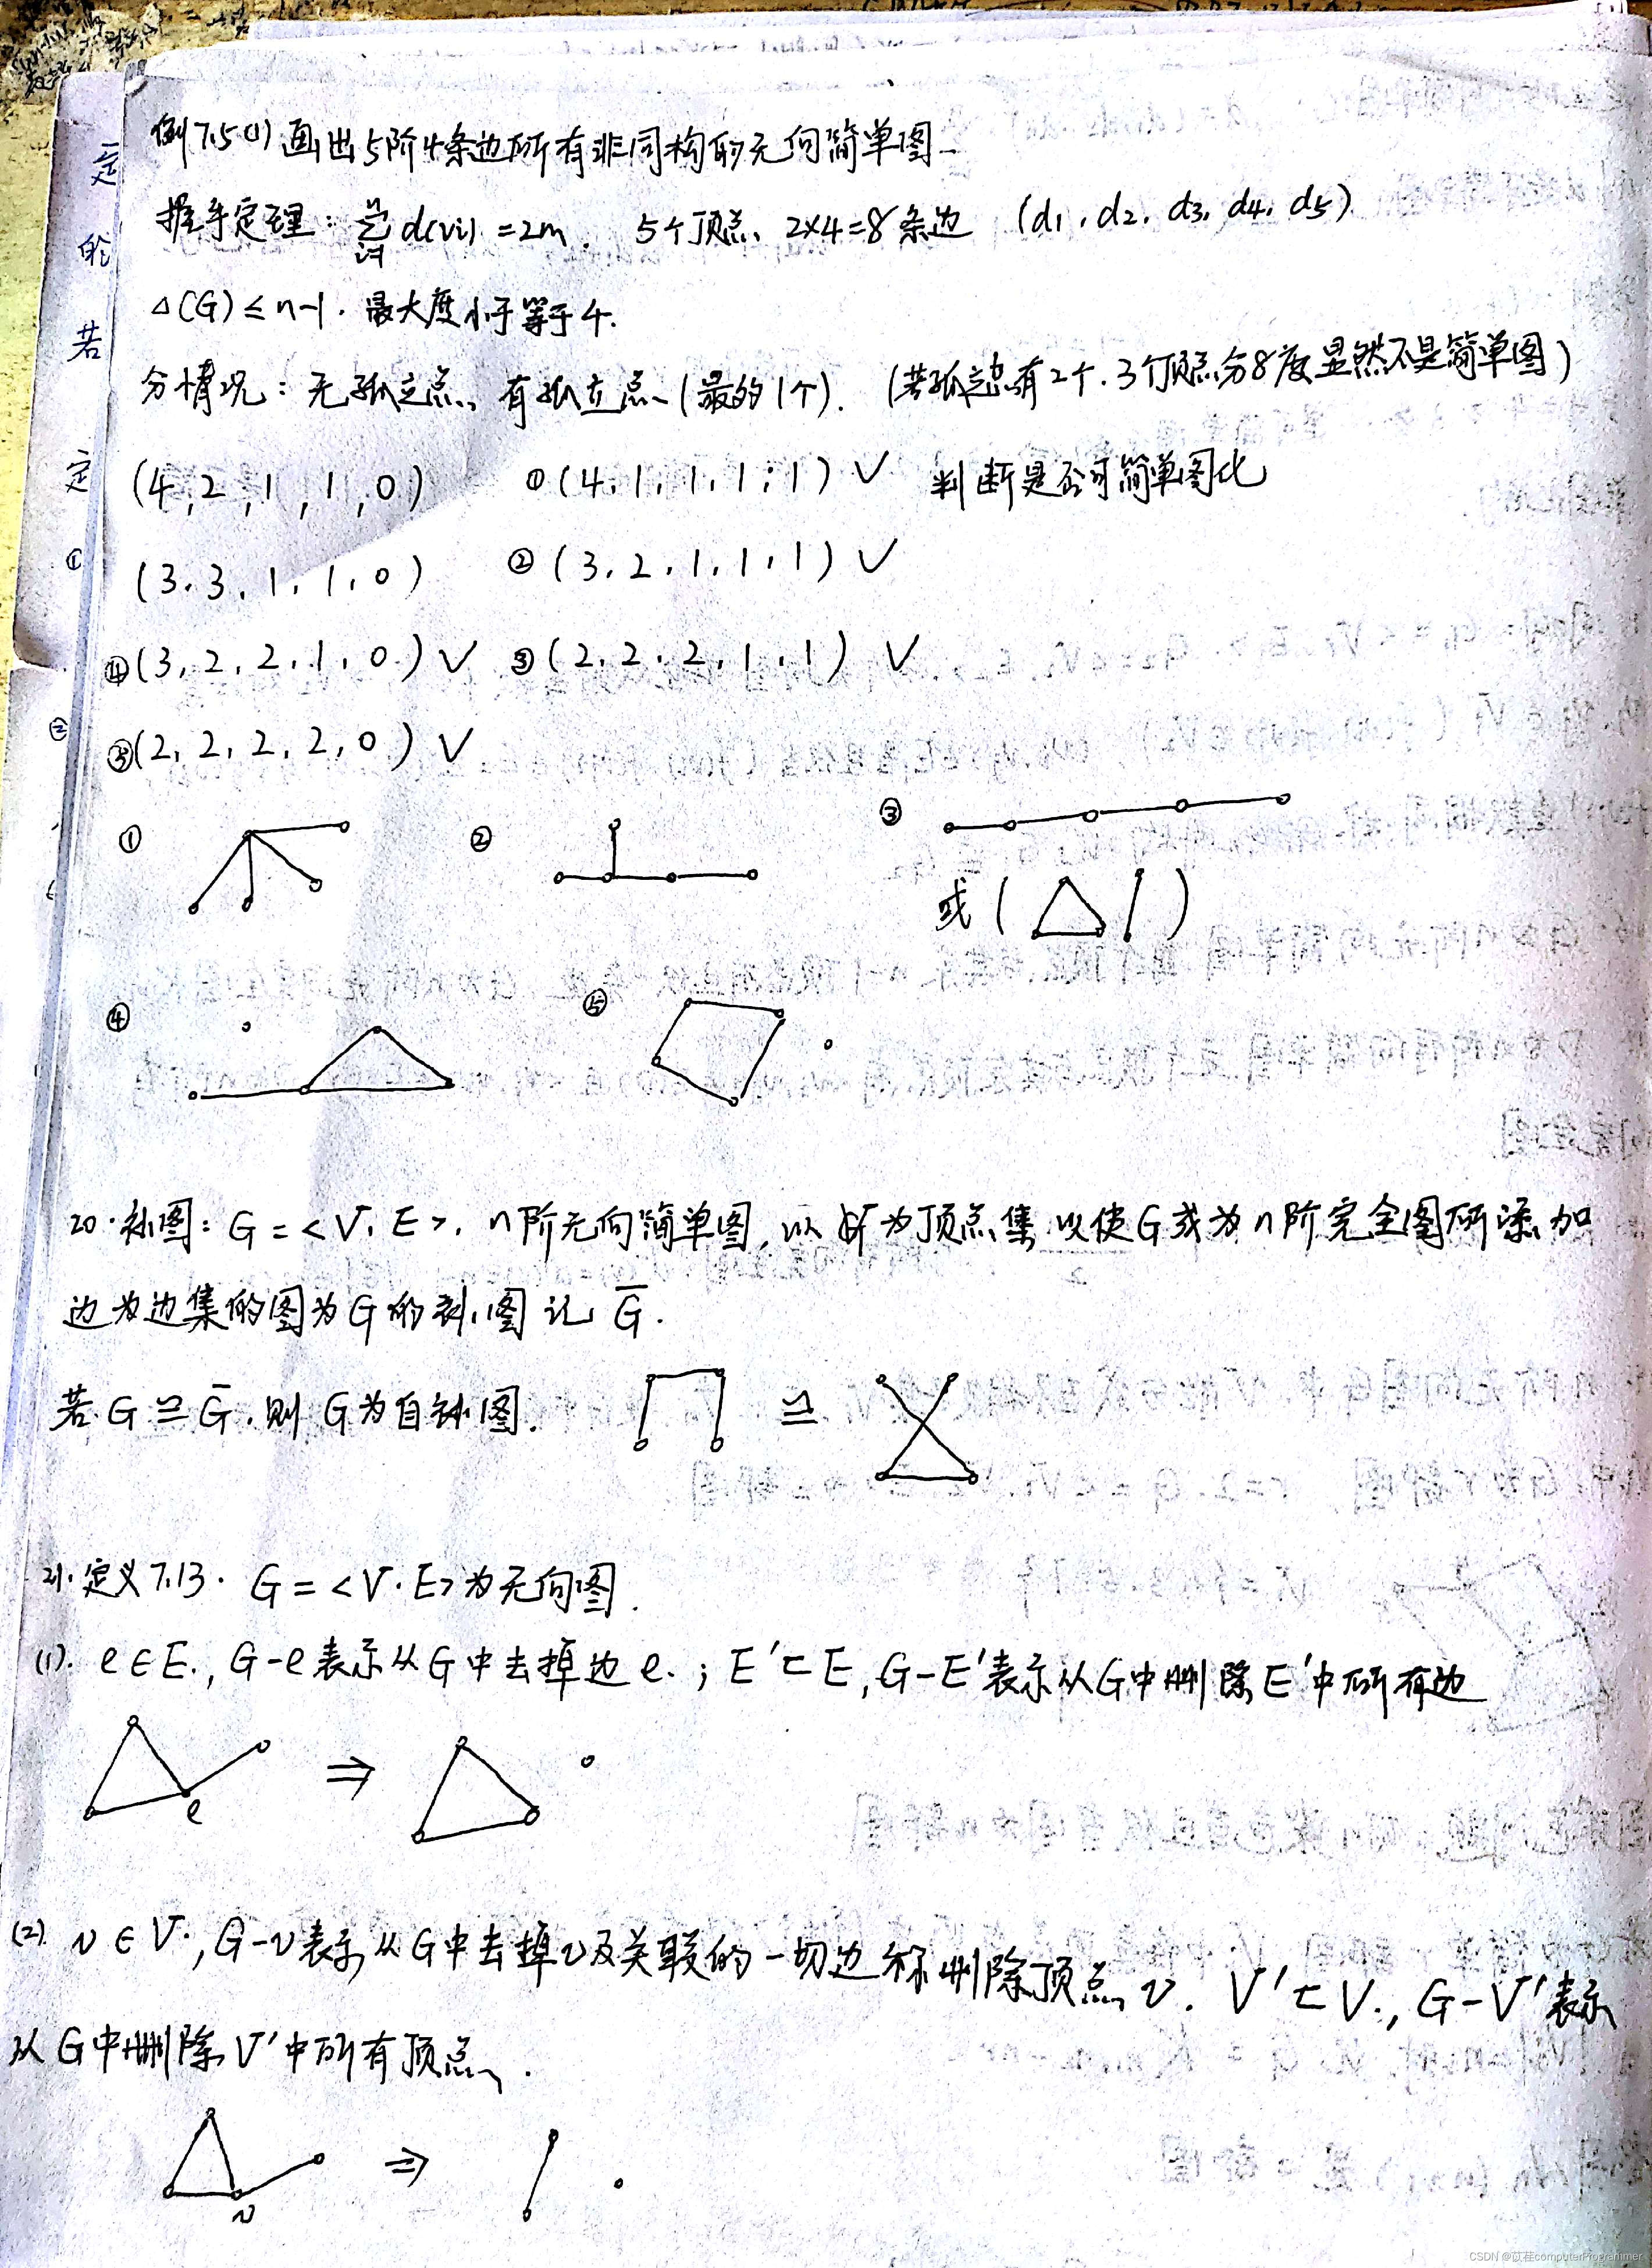 例7.5(1) 画出5阶4条边所有非同构的无向简单图
握手定理: n∑i=1 d(vi) = 2m. 5个顶点、2×4=8条边 (d1, d2, d3, d4, d5)
△(G) ≤ n-1. 最大度小于等于4.
分情况: 无孤立点、有孤立点(最多的1个). (若孤立点有2个.3个顶点分8度显然不是简单图)
(4, 2, 1, 1, 0) ①(4, 1, 1, 1, 1) √ 判断是否可简单图化
(3, 3, 1, 1, 0) ②(3, 2, 1, 1, 1) √
④(3, 2, 2, 1, 0) √ ③(2, 2, 2, 1, 1) √
⑤(2, 2, 2, 2, 0) √
① ② ③
或 ( )
④ ⑤
20. 补图: G = <V, E>, n阶无向简单图, 以 为顶点集, 以使G成为n阶完全图所添加
边为边集的图为G的补图 记 G̅.
若 G ≌ G̅, 则 G为自补图. ≌
21. 定义7.13. G = <V, E>为无向图.
(1). e∈E., G-e表示从G中去掉边e. ; E'⊂E, G-E'表示从G中删除E'中所有边
⇒
e
(2). v∈V., G-v表示从G中去掉v及关联的一切边 称删除顶点v. V'⊂V., G-V'表示
从G中删除V'中所有顶点.
⇒
v
定
的
若
定
①
②
CSDN @苡荏computerProgrammer